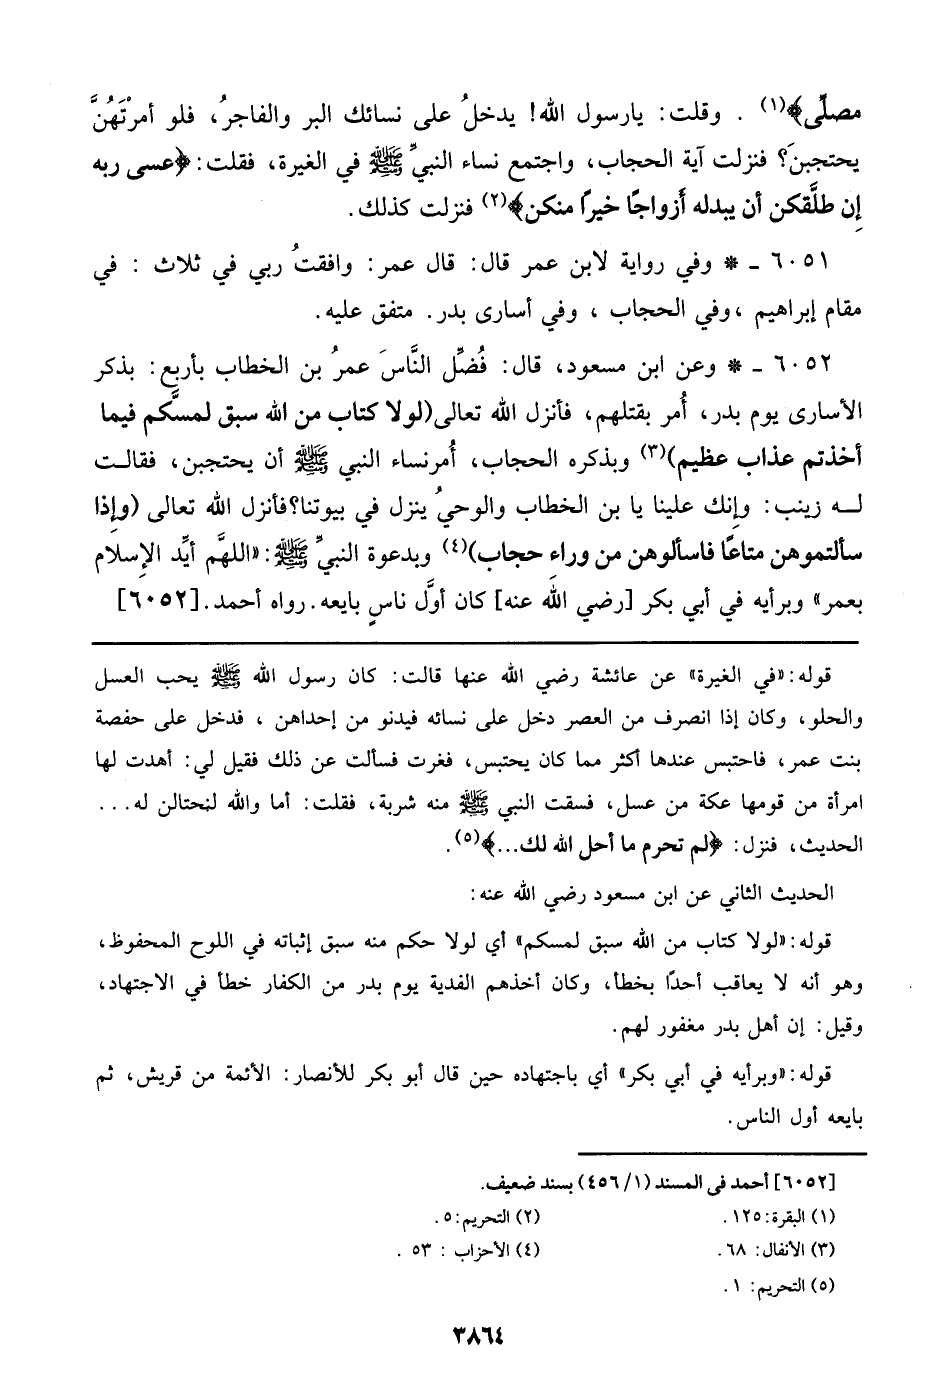 مصلًّى﴾(١) . وقلت: يارسول الله! يدخلُ على نسائك البر والفاجرُ، فلو أمرْتَهُنَّ
يحتجبنَ؟ فنزلت آية الحجاب، واجتمع نساء النبيِّ ﷺ في الغيرة، فقلت: ﴿عسى ربه
إن طلَّقكن أن يبدله أزواجًا خيرًا منكن﴾(٢) فنزلت كذلك.
٦٠٥١ ـ * وفي رواية لابن عمر قال: قال عمر: وافقتُ ربي في ثلاث : في
مقام إبراهيم ،وفي الحجاب ، وفي أسارى بدر. متفق عليه.
٦٠٥٢ ـ * وعن ابن مسعود، قال: فُضِّل النَّاسَ عمرُ بن الخطاب بأربع: بذكر
الأسارى يوم بدر، أُمر بقتلهم، فأنزل الله تعالى(لولا كتاب من الله سبق لمسَّكم فيما
أخذتم عذاب عظيم)(٣) وبذكره الحجاب، أُمرنساء النبي ﷺ أن يحتجبن، فقالت
لـه زينب: وإنك علينا يا بن الخطاب والوحيُ ينزل في بيوتنا؟فأنزل الله تعالى (وإذا
سألتموهن متاعًا فاسألوهن من وراء حجاب)(٤) وبدعوة النبيِّ ﷺ:«اللهَّم أيِّد الإسلام
بعمر» وبرأيه في أبي بكر [رضي الله عنه] كان أوَّل ناسٍ بايعه. رواه أحمد. [٦٠٥٢]
قوله:«في الغيرة» عن عائشة رضي الله عنها قالت: كان رسول الله ﷺ يحب العسل
والحلو، وكان إذا انصرف من العصر دخل على نسائه فيدنو من إحداهن ، فدخل على حفصة
بنت عمر، فاحتبس عندها أكثر مما كان يحتبس، فغرت فسألت عن ذلك فقيل لي: أهدت لها
امرأة من قومها عكة من عسل، فسقت النبي ﷺ منه شربة، فقلت: أما والله لنحتالن له...
الحديث، فنزل: ﴿لم تحرم ما أحل الله لك...﴾(٥).
الحديث الثاني عن ابن مسعود رضي الله عنه:
قوله:«لولا كتاب من الله سبق لمسكم» أي لولا حكم منه سبق إثباته في اللوح المحفوظ،
وهو أنه لا يعاقب أحدًا بخطأ، وكان أخذهم الفدية يوم بدر من الكفار خطأ في الاجتهاد،
وقيل: إن أهل بدر مغفور لهم.
قوله:«وبرأيه في أبي بكر» أي باجتهاده حين قال أبو بكر للأنصار: الأئمة من قريش، ثم
بايعه أول الناس.
[٦٠٥٢] أحمد في المسند (١/ ٤٥٦) بسند ضعيف.
(١) البقرة: ١٢٥. (٢) التحريم: ٥.
(٣) الأنفال: ٦٨. (٤) الأحزاب : ٥٣ .
(٥) التحريم: ١.
٣٨٦٤